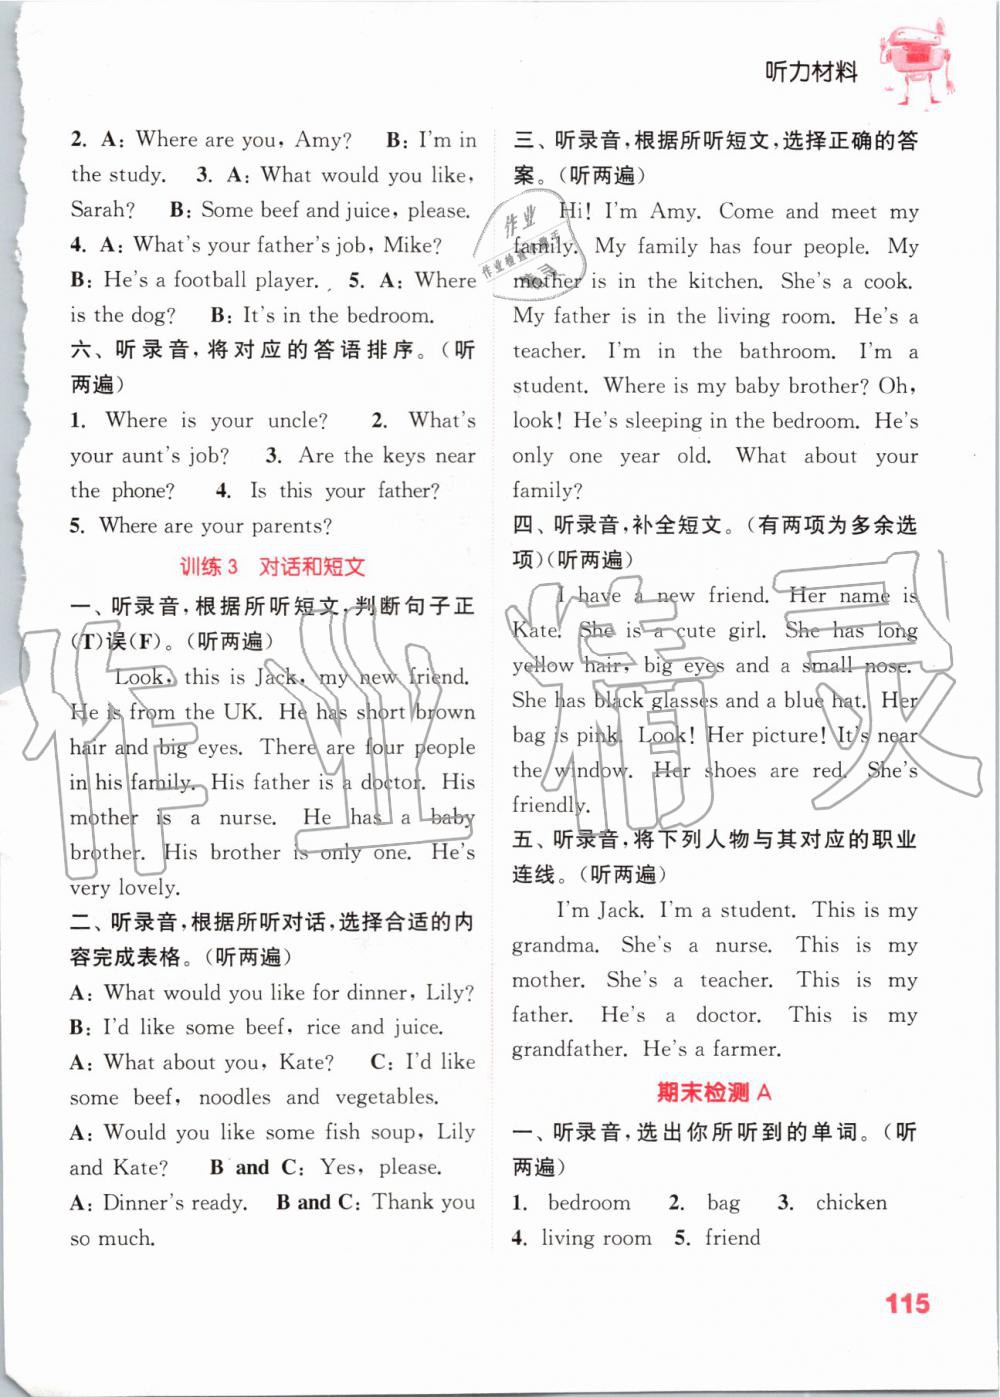 听力材料
2. A: Where are you, Amy? B: I'm in
the study. 3. A: What would you like,
Sarah? B: Some beef and juice, please.
4. A: What's your father's job, Mike?
B: He's a football player. 5. A: Where
is the dog? B: It's in the bedroom.
六、听录音,将对应的答语排序。(听
两遍)
1. Where is your uncle? 2. What's
your aunt's job? 3. Are the keys near
the phone? 4. Is this your father?
5. Where are your parents?
训练3 对话和短文
一、听录音,根据所听短文,判断句子正
(T)误(F)。(听两遍)
Look, this is Jack, my new friend.
He is from the UK. He has short brown
hair and big eyes. There are four people
in his family. His father is a doctor. His
mother is a nurse. He has a baby
brother. His brother is only one. He's
very lovely.
二、听录音,根据所听对话,选择合适的内
容完成表格。(听两遍)
A: What would you like for dinner, Lily?
B: I'd like some beef, rice and juice.
A: What about you, Kate? C: I'd like
some beef, noodles and vegetables.
A: Would you like some fish soup, Lily
and Kate? B and C: Yes, please.
A: Dinner's ready. B and C: Thank you
so much.
三、听录音,根据所听短文,选择正确的答
案。(听两遍)
Hi! I'm Amy. Come and meet my
family. My family has four people. My
mother is in the kitchen. She's a cook.
My father is in the living room. He's a
teacher. I'm in the bathroom. I'm a
student. Where is my baby brother? Oh,
look! He's sleeping in the bedroom. He's
only one year old. What about your
family?
四、听录音,补全短文。(有两项为多余选
项)(听两遍)
I have a new friend. Her name is
Kate. She is a cute girl. She has long
yellow hair, big eyes and a small nose.
She has black glasses and a blue hat. Her
bag is pink. Look! Her picture! It's near
the window. Her shoes are red. She's
friendly.
五、听录音,将下列人物与其对应的职业
连线。(听两遍)
I'm Jack. I'm a student. This is my
grandma. She's a nurse. This is my
mother. She's a teacher. This is my
father. He's a doctor. This is my
grandfather. He's a farmer.
期末检测 A
一、听录音,选出你所听到的单词。(听
两遍)
1. bedroom 2. bag 3. chicken
4. living room 5. friend
115
作业精灵
作业
作业检查小助手
精灵